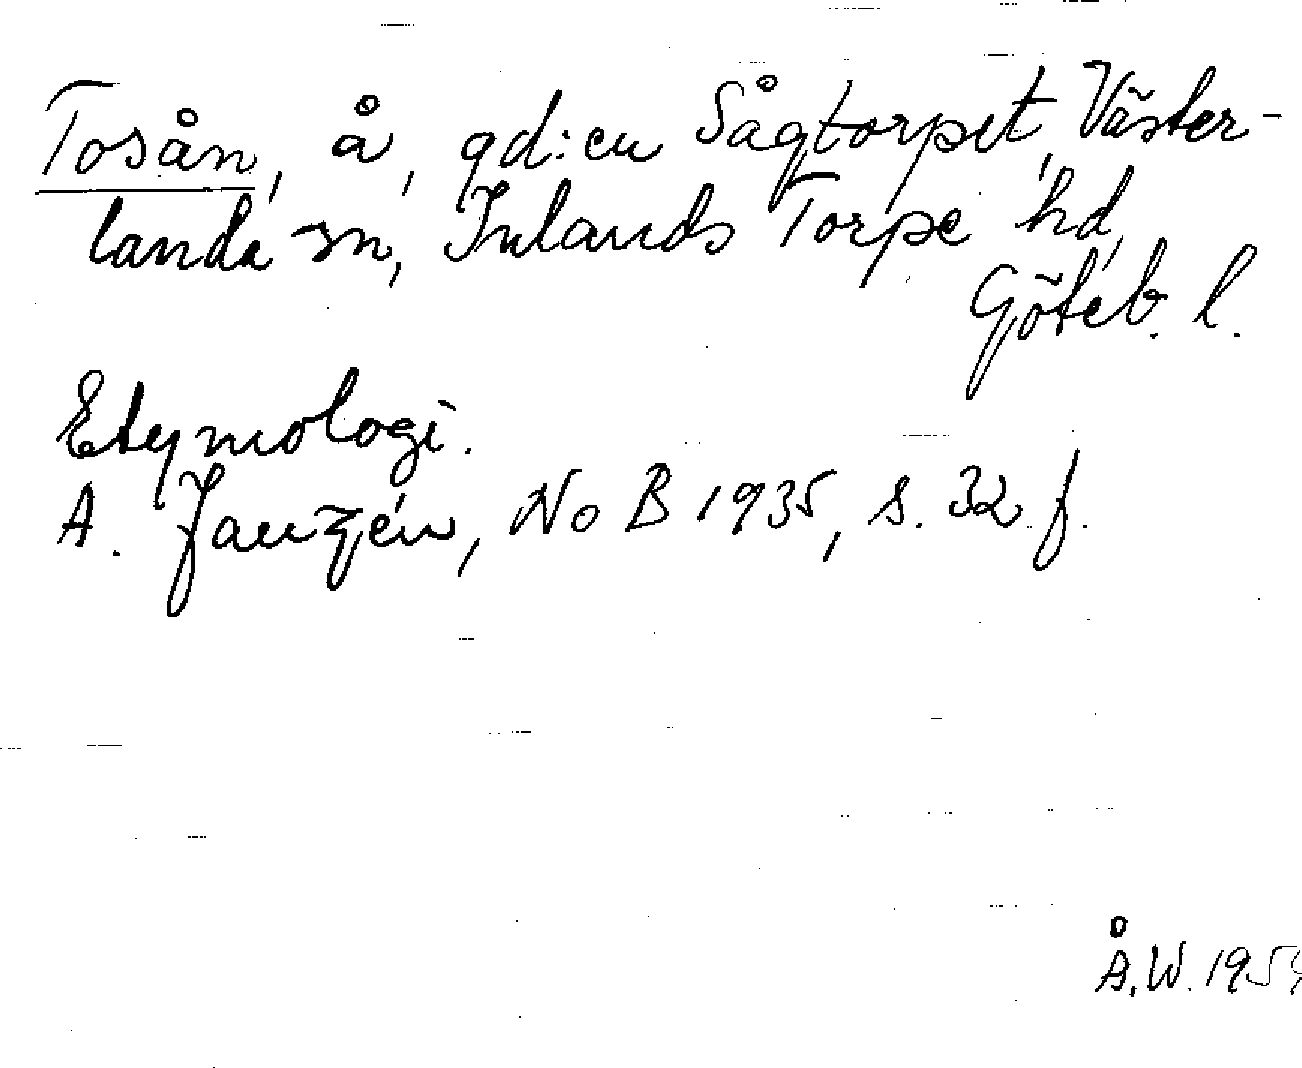 Tosån, å, gd:en Sågtorpet, Väster-
landa sn, Inlands Torpe hd,
Göteb. l.
Etymologi.
A. Janzén, NoB 1935, s. 32 f.
Å.W.